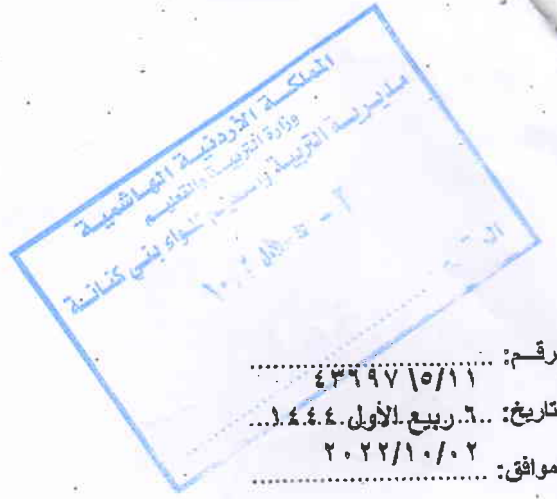 المملكة الأردنية الهاشمية
وزارة التربية والتعليم
مديرية التربية والتعليم للواء بني كنانة
رقم: ٤٣٦٩٧ \٥/١١
تاريخ: ٦ ربيع الأول ١٤٤٤
موافق: ٢٠٢٢/١٠/٠٢